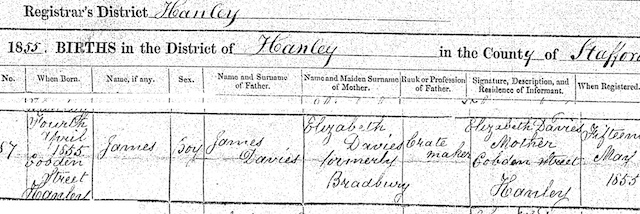 Registrar's District Hanley
1855. BIRTHS in the District of Hanley in the County of Stafford
No. When Born. Name, if any. Sex. Name and Surname of Father. Name and Maiden Surname of Mother. Rank or Profession of Father. Signature, Description, and Residence of Informant. When Registered.
7
Fourth
April
1855
Cobden
Street
Hanley
James
Boy
James
Davies
Elizabeth
Davies
formerly
Bradbury
Crate
maker
Elizabeth Davies
Mother
Cobden Street
Hanley
Fifteenth
May
1855